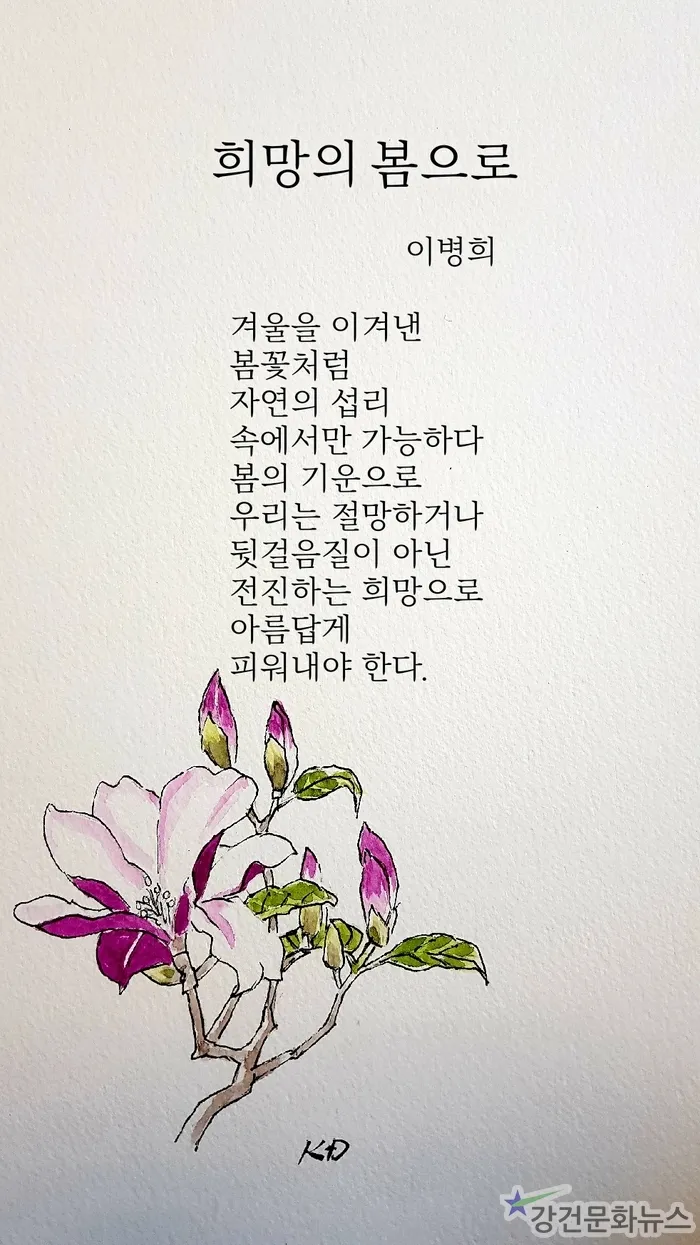 희망의 봄으로
이병희
겨울을 이겨낸
봄꽃처럼
자연의 섭리
속에서만 가능하다
봄의 기운으로
우리는 절망하거나
뒷걸음질이 아닌
전진하는 희망으로
아름답게
피워내야 한다.
KD
강건문화뉴스